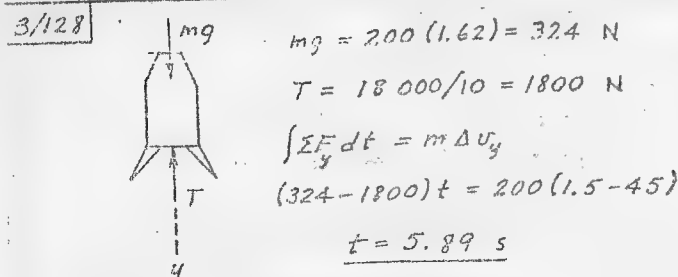 3/128
mg
mg = 200 (1.62) = 324 N
y
T = 18 000/10 = 1800 N
∫ΣF_y dt = m Δ v_y
(324-1800)t = 200(1.5-45)
T
t = 5.89 s
y